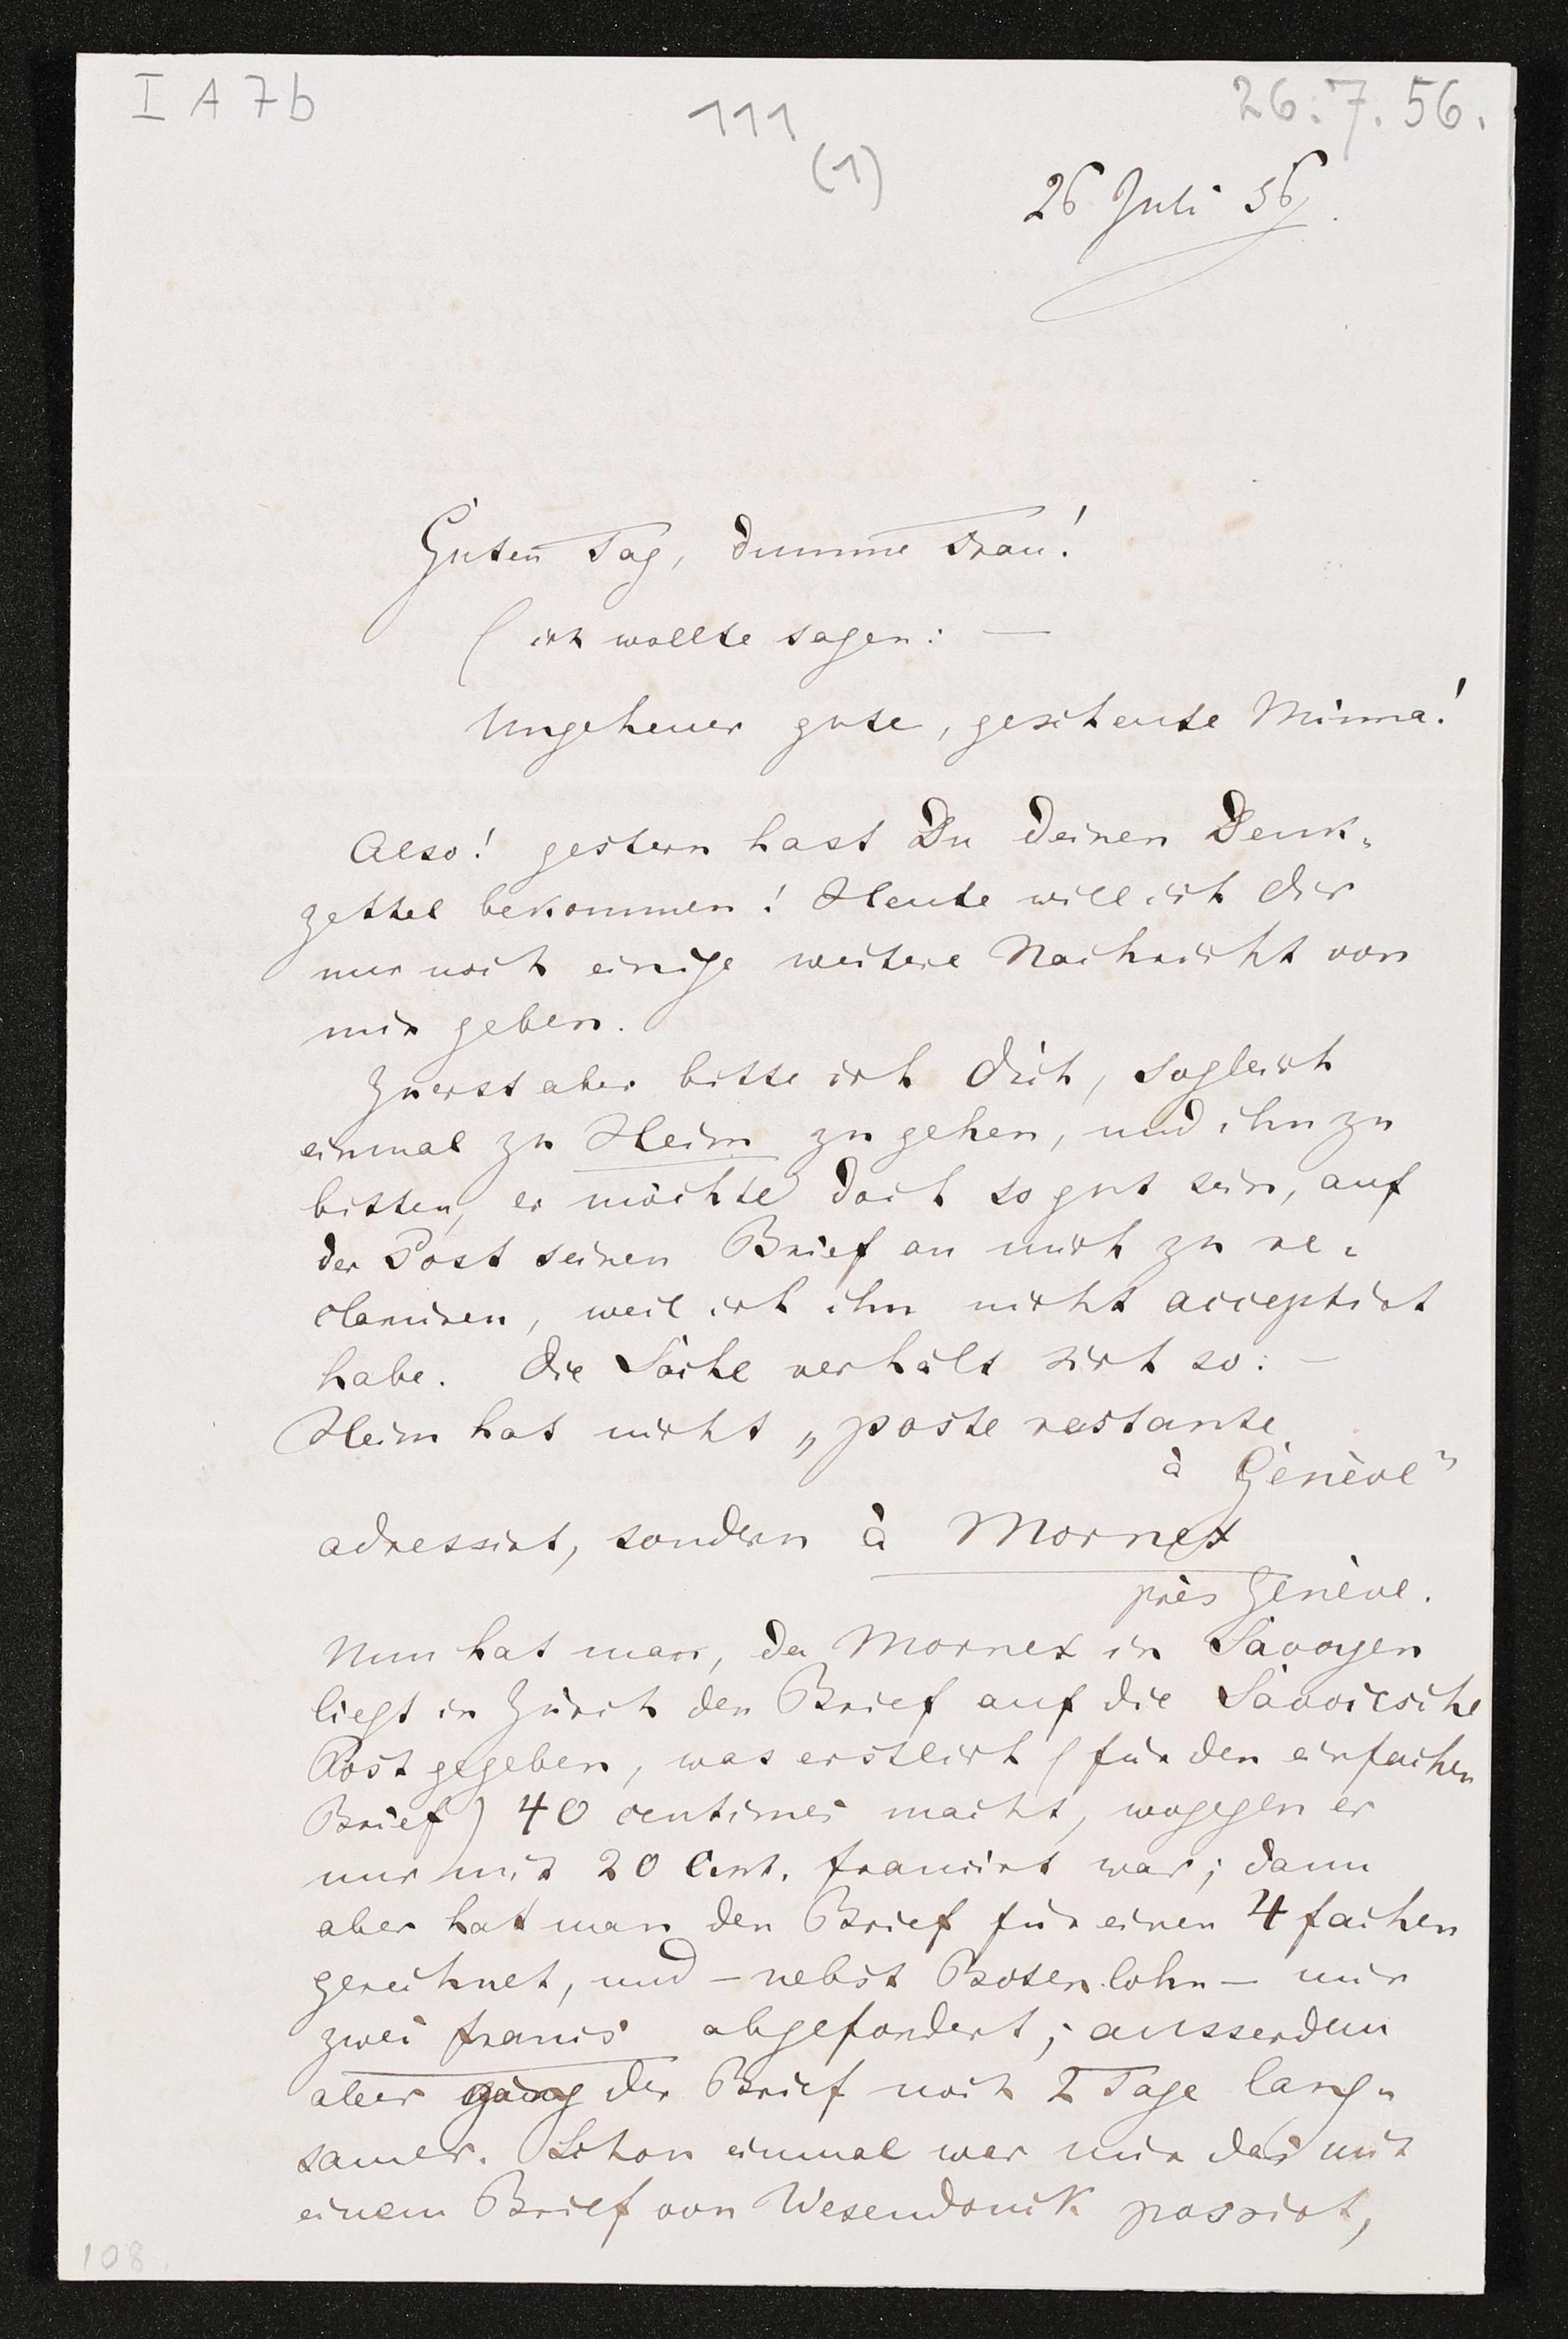 I A 7b
111
(1)
26.7.56.
26 Juli 56.
Guten Tag, dumme Frau!
(ich wollte sagen: —
Ungeheuer gute, gescheute Minna!
Also! gestern hast Du Deinen Denk-
zettel bekommen! Heute will ich Dir
nur noch einige weitere Nachricht von
mir geben.
Zuerst aber bitte ich Dich, sogleich
einmal zu Heim zu gehen, und ihn zu
bitten, er möchte doch so gut sein, auf
der Post seinen Brief an mich zu re-
clamiren, weil ich ihn nicht acceptirt
habe. Die Sache verhält sich so: —
Heim hat nicht „poste restante
à Genève"
adressirt, sondern à Mornex
près Genève.
Nun hat man, da Mornex in Savoyen
liegt in Zürich den Brief auf die Savoiesche
Post gegeben, was erstlich (für den einfachen
Brief) 40 centimes macht, wogegen er
nur mit 20 Cent. francirt war; dann
aber hat man den Brief für einen 4 fachen
gerechnet, und – nebst Botenlohn – mir
zwei francs abgefordert; ausserdem
aber ging der Brief noch 2 Tage lang-
samer. Schon einmal war mir das mit
einem Brief von Wesendonck passirt,
108.